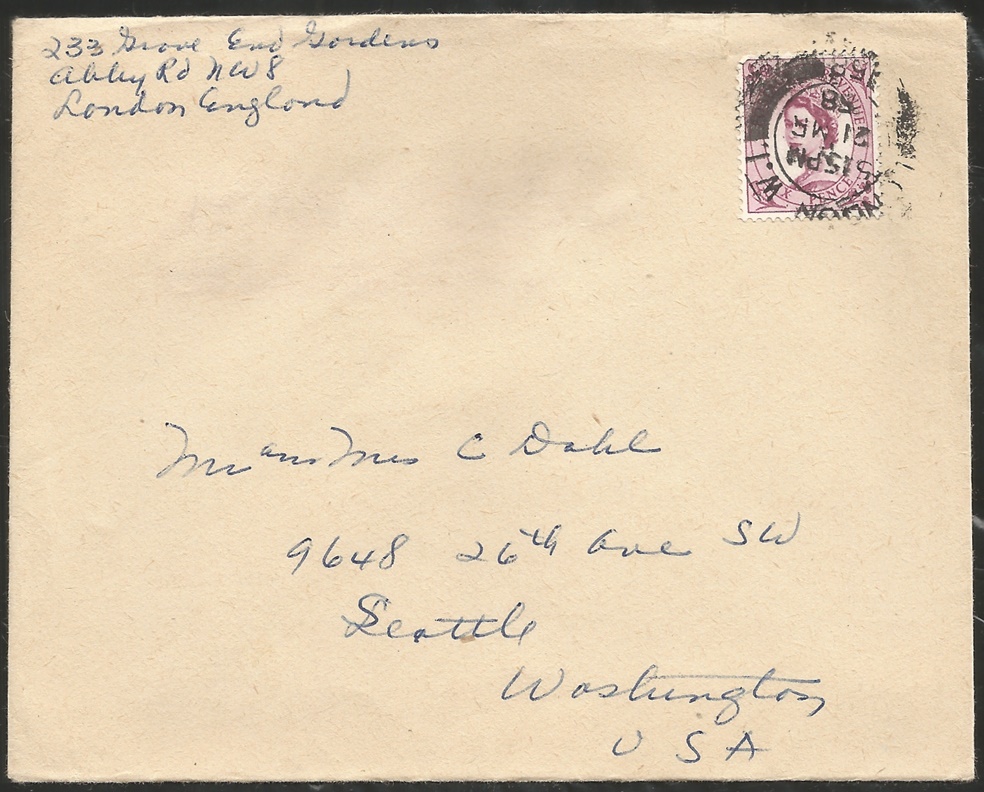 233 Grove End Gardens
Abbey Rd NW8
London England
W.1.
5 15 PM
21 MR
58
PENCE
Mr and Mrs C Dahl
9648 26th Ave SW
Seattle
Washington
U S A